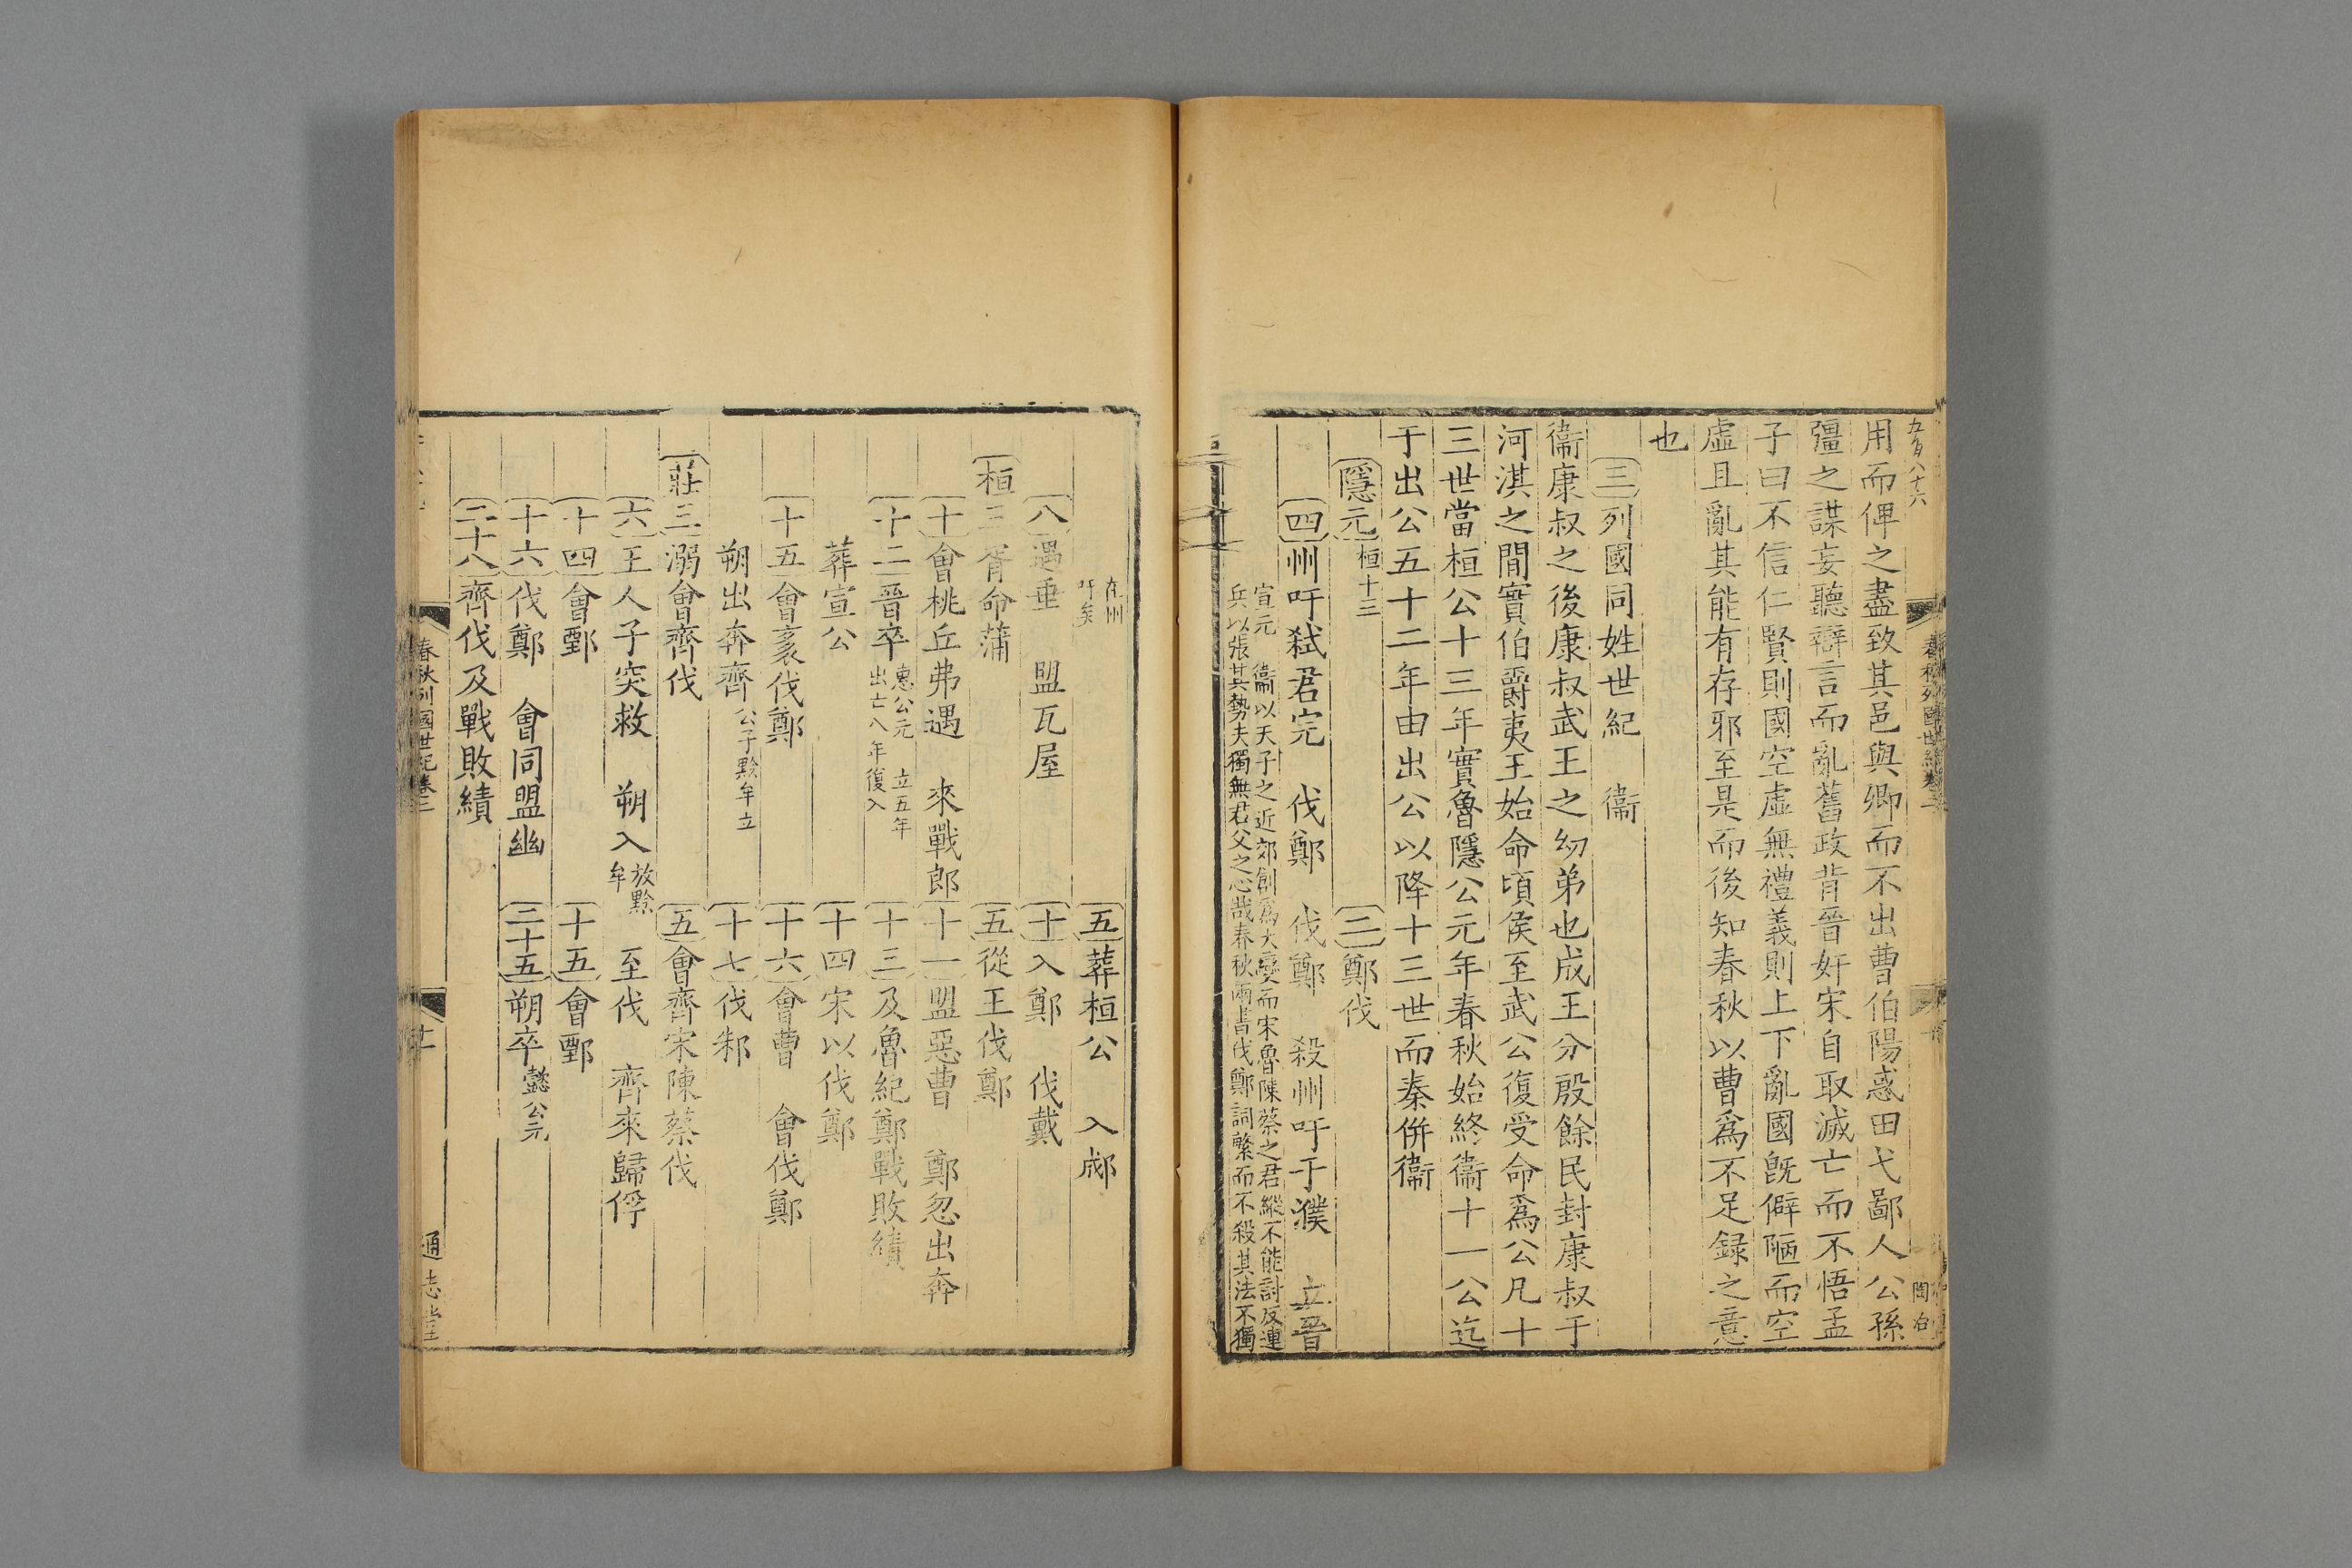 用而俾之盡致其邑與卿而不出曹伯陽惑田弋鄙人公孫
彊之謀妄聽辯言而亂舊政背晉奸宋自取滅亡而不悟孟
子曰不信仁賢則國空虛無禮義則上下亂國旣僻陋而空
虛且亂其能有存邪至是而後知春秋以曹爲不足録之意
也
三列國同姓世紀　衞
衞康叔之後康叔武王之幼弟也成王分殷餘民封康叔于
河淇之間實伯爵夷王始命頃侯至武公復受命爲公凡十
三世當桓公十三年實魯隱公元年春秋始終衞十一公迄
于出公五十二年由出公以降十三世而秦併衞
隱元 桓十三　二鄭伐
四州吁弑君完　伐鄭　伐鄭　殺州吁于濮　立晉
宣元　衞以天子之近郊創爲大變而宋魯陳蔡之君縱不能討反連
兵以張其勢夫獨無君父之心哉春秋兩書伐鄭詞繁而不殺其法不獨
在州
吁矣　五葬桓公　入郕
八遇垂　盟瓦屋　十入鄭　伐戴
桓三胥命蒲　五從王伐鄭
十會桃丘弗遇　來戰郎　十一盟惡曹　鄭忽出奔
十二晉卒 惠公元　立五年 出亡八年復入　十三及魯紀鄭戰敗績
葬宣公　十四宋以伐鄭
十五會袲伐鄭　十六會曹　會伐鄭
朔出奔齊 公子黔牟立　十七伐邾
莊三溺會齊伐　五會齊宋陳蔡伐
六王人子突救　朔入 放黔牟　至伐　齊來歸俘
十四會鄄　十五會鄄
十六伐鄭　會同盟幽　二十五朔卒 懿公元
二十八齊伐及戰敗績
春秋列國世紀卷二
十一
通志堂